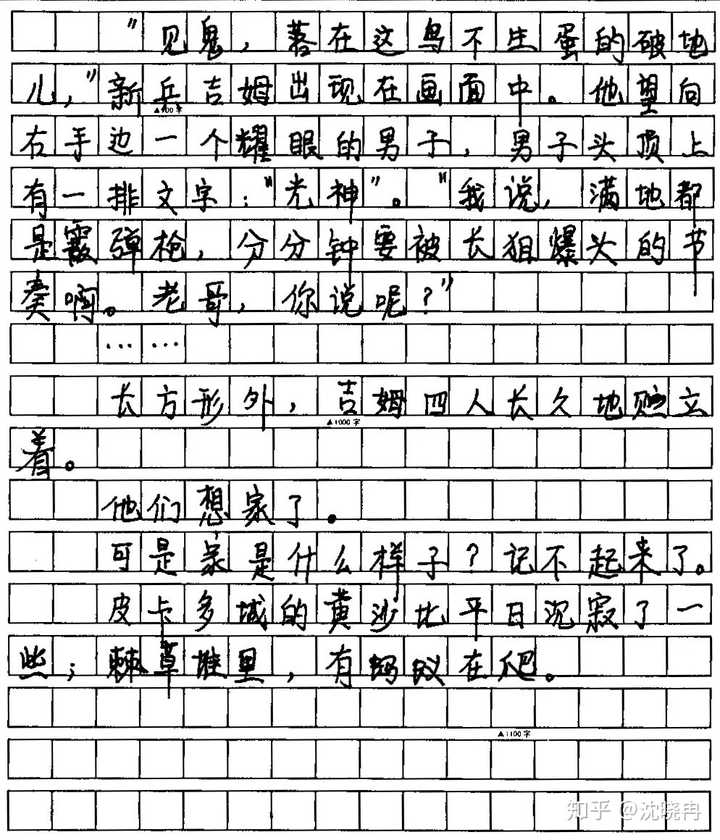 “见鬼，落在这鸟不生蛋的破地
儿，”新兵吉姆出现在画面中。他望向
▲900字
右手边一个耀眼的男子，男子头顶上
有一排文字：“光神”。“我说，满地都
是霰弹枪，分分钟要被长狙爆头的节
奏啊。老哥，你说呢？”
……
长方形外，吉姆四人长久地贮立
▲1000字
着。
他们想家了。
可是家是什么样子？记不起来了。
皮卡多城的黄沙比平日沉寂了一
些；棘草堆里，有蚂蚁在爬。
▲1100字
知乎 @沈晓冉